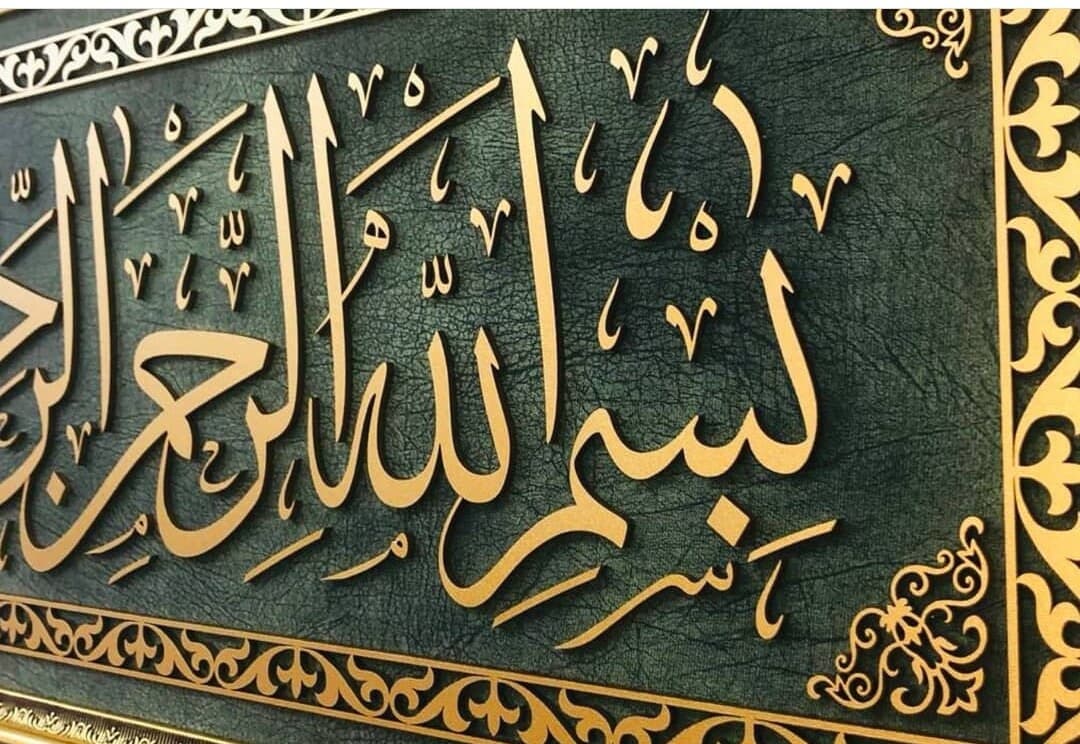 بِسْمِ اللّٰهِ الرَّحْمٰنِ الرَّح